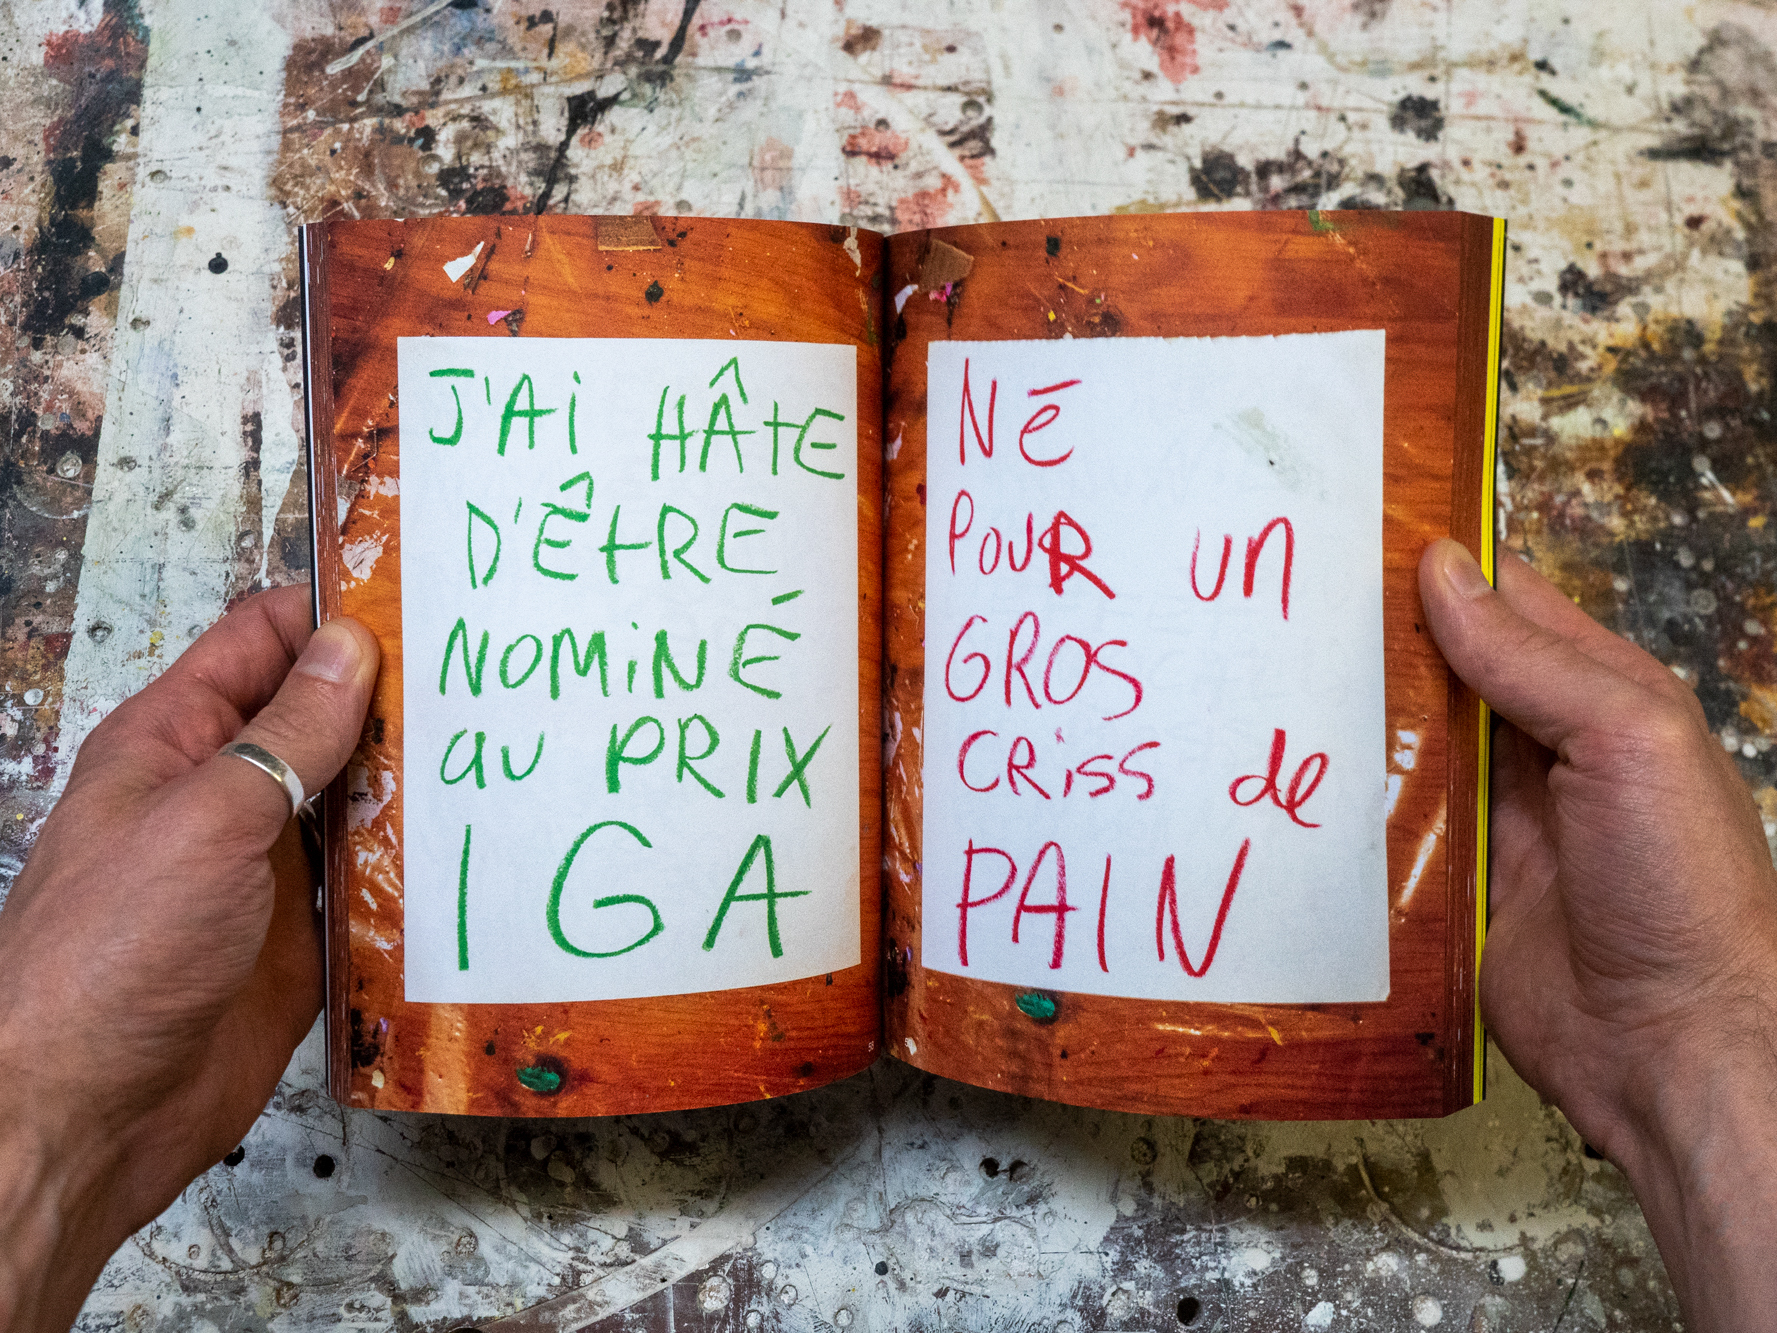 J'Ai HÂtE
D'ÊtRE
NOMiNÉ
au PRIX
IGA
NÉ
POUR un
GROS
CRiss de
PAIN